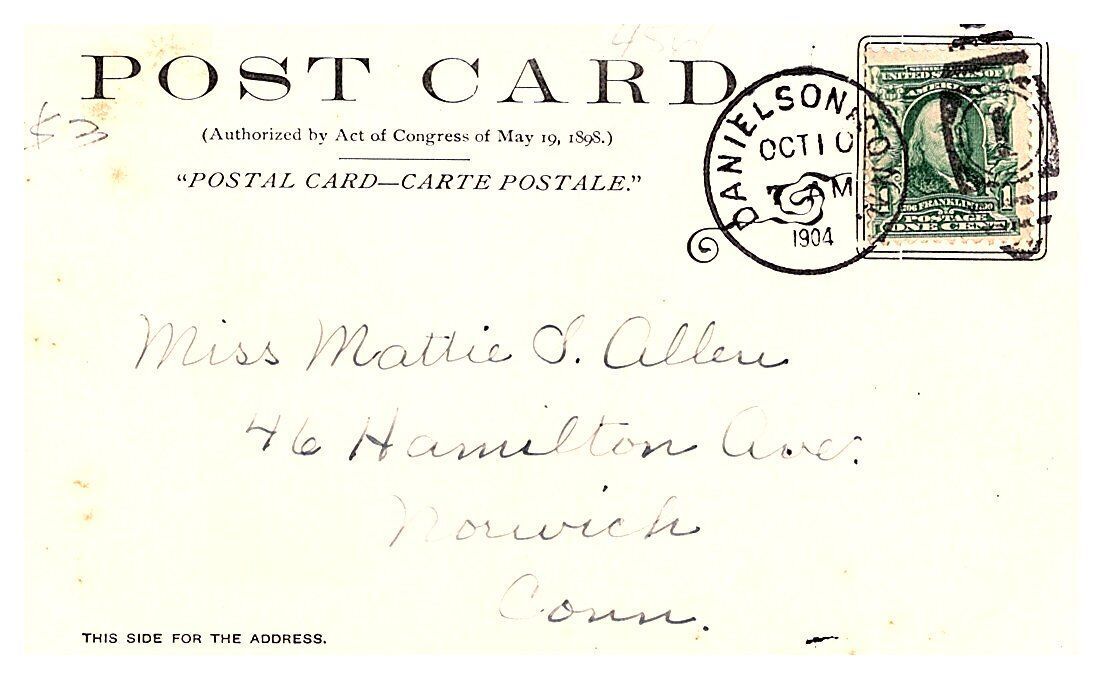 POST CARD
(Authorized by Act of Congress of May 19, 1898.)
"POSTAL CARD—CARTE POSTALE."
$3
DANIELSON, CONN.
OCT 10
7 AM
1904
SERIES 1902
UNITED STATES OF
AMERICA
1706 FRANKLIN 1790
POSTAGE
1 ONE CENT 1
Miss Mattie S. Allen
46 Hamilton Ave.
Norwich
Conn.
THIS SIDE FOR THE ADDRESS.